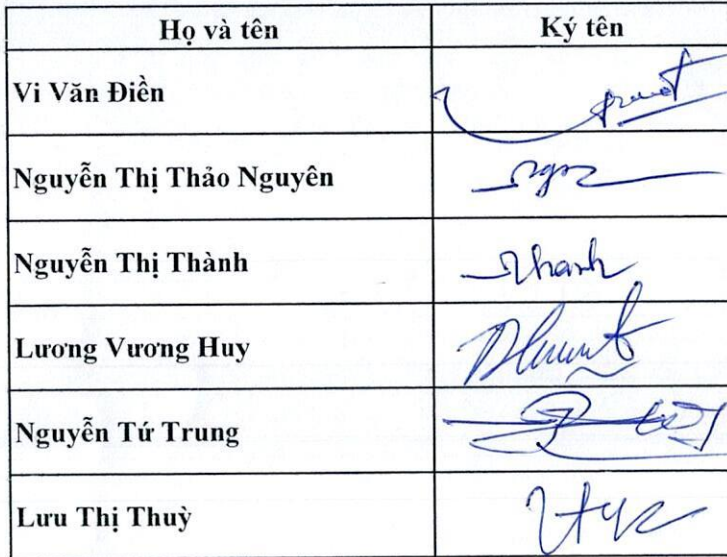 Họ và tên Ký tên
Vi Văn Điền
Nguyễn Thị Thảo Nguyên
Nguyễn Thị Thành Thanh
Lương Vương Huy
Nguyễn Tứ Trung
Lưu Thị Thuỳ